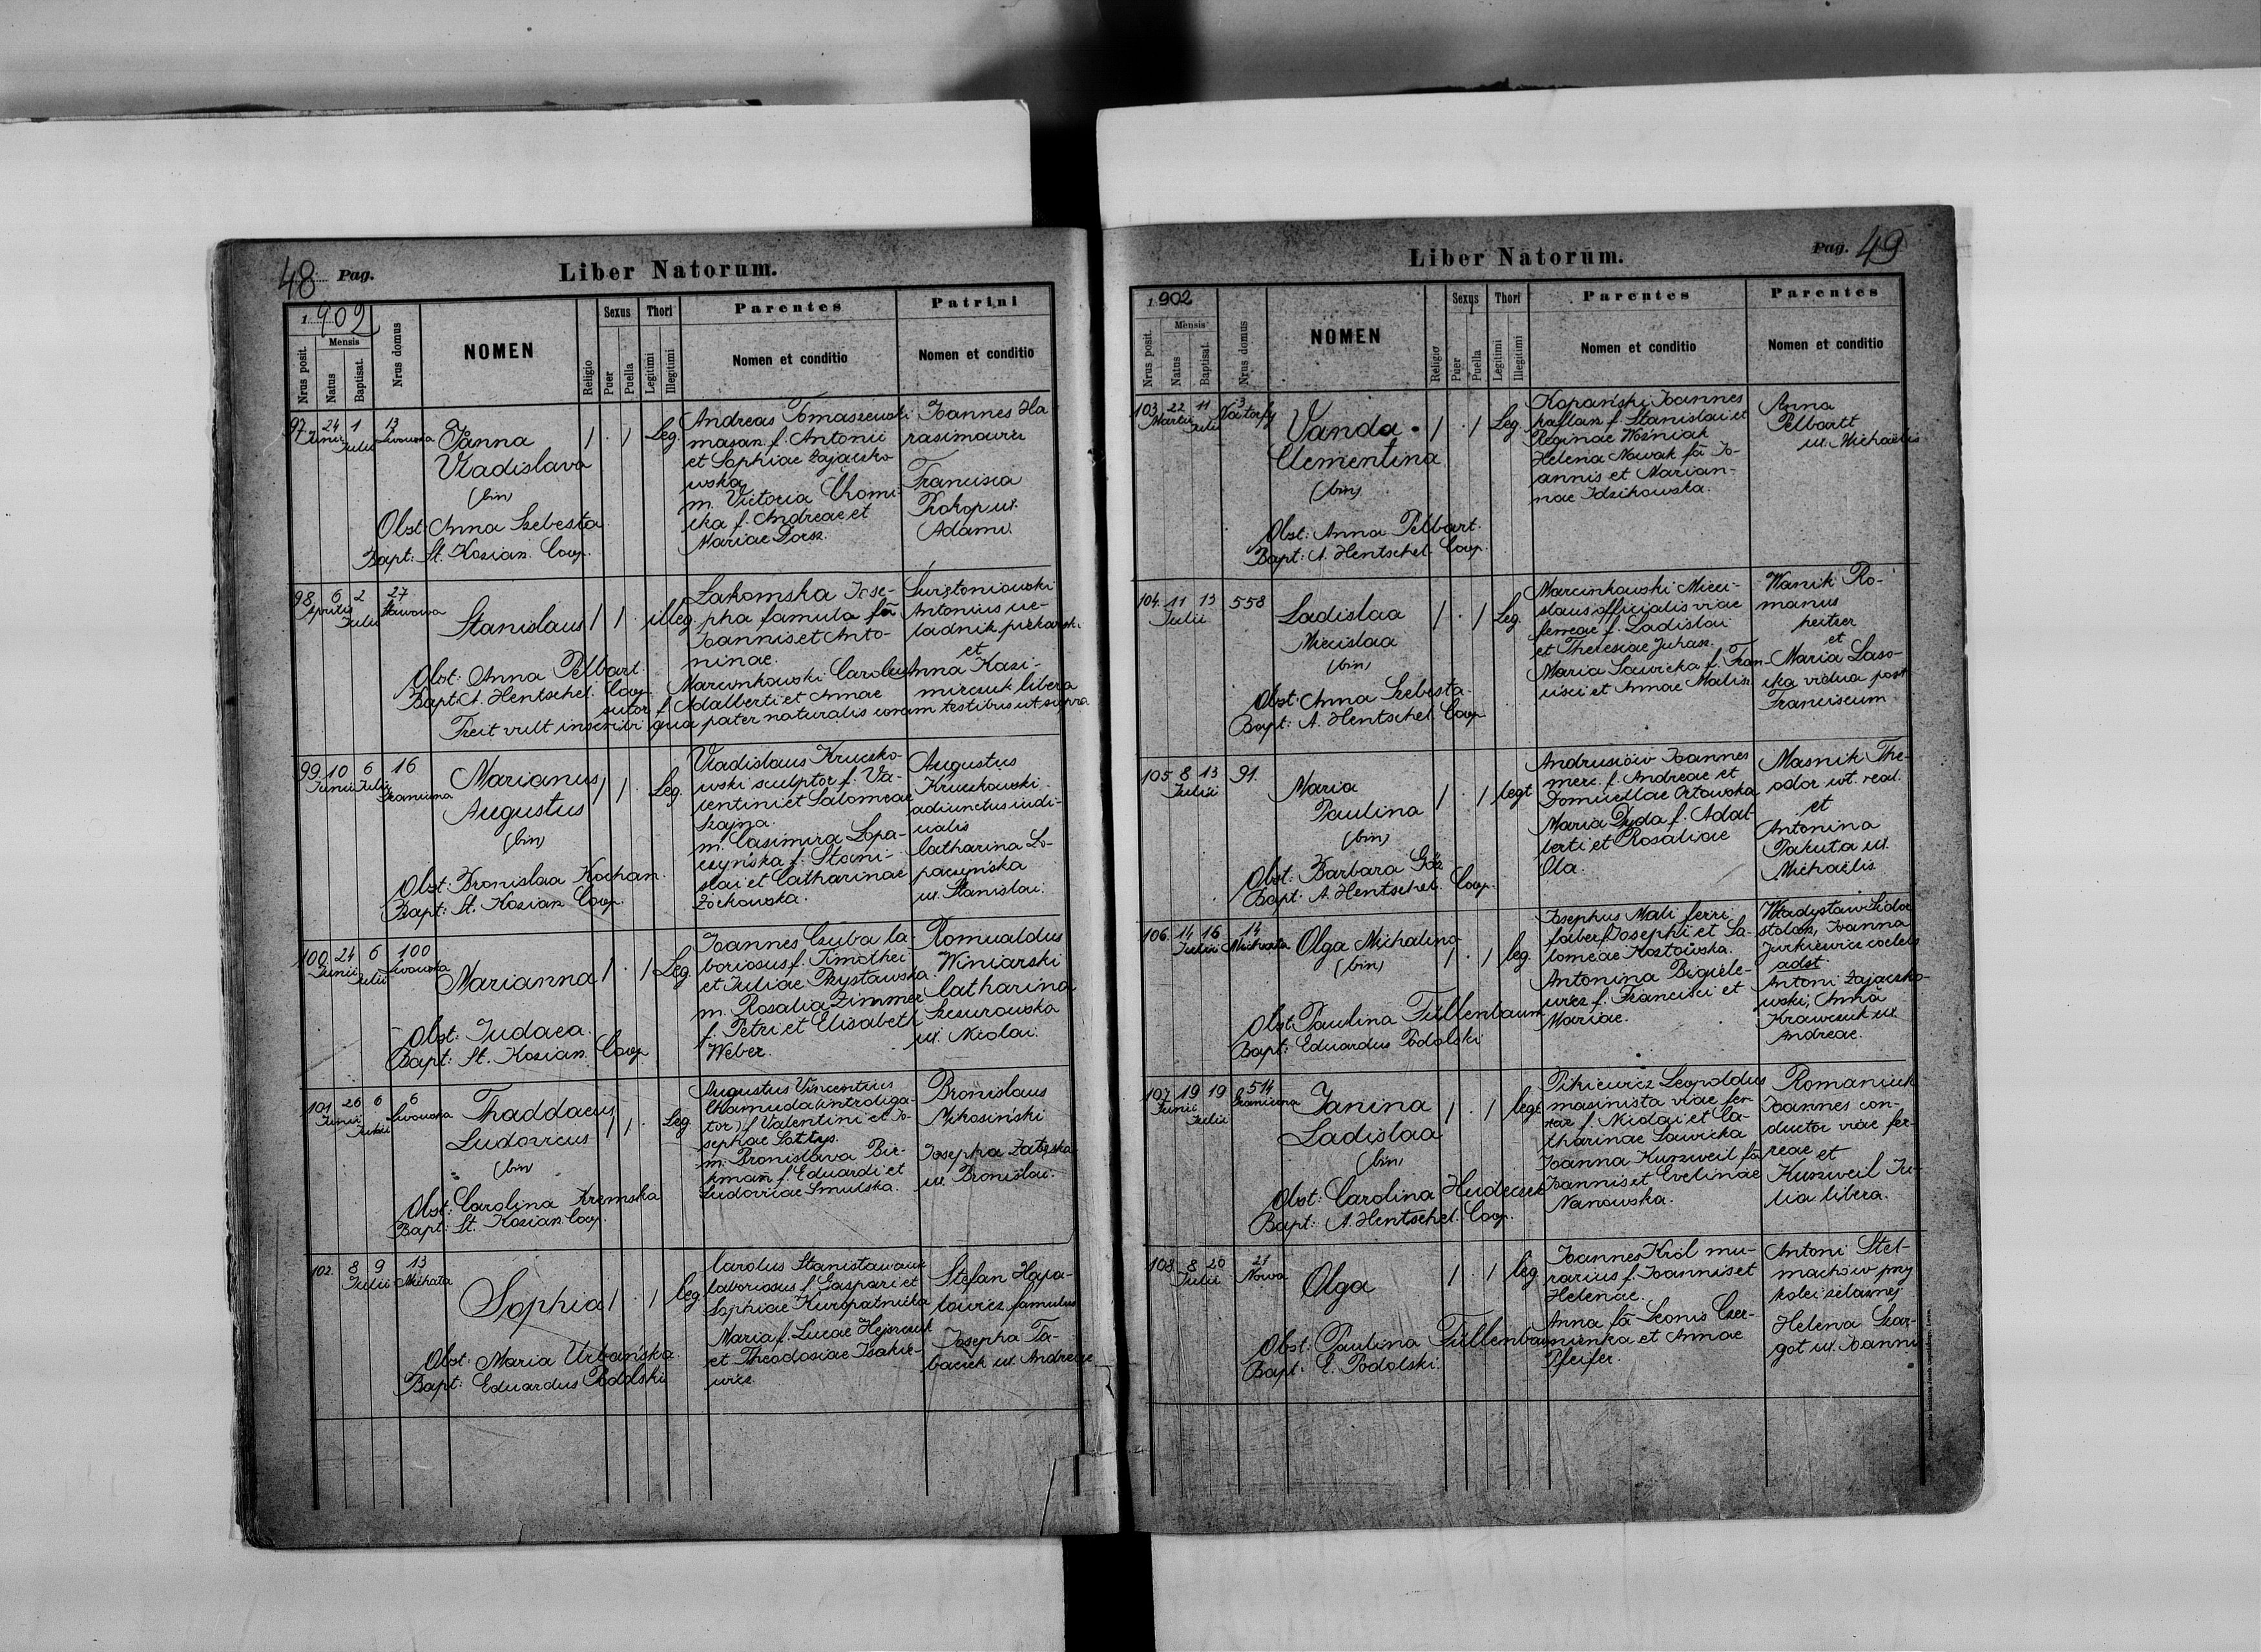 48 Pag.
Liber Natorum.
1902
Nrus posit.
Mensis
Natus
Baptisat.
Nrus domus
NOMEN
Religio
Sexus
Puer
Puella
Thori
Legitimi
Illegitimi
Parentes
Nomen et conditio
Patrini
Nomen et conditio
97. 24 Junii 1 Julii 13 Lwowska
Janna
Vladislava
(bin)
Obst: Anna Szebesta
Bapt: St. Kozian. Coop.
1 . 1 Leg.
Andreas Tomaszewski
mason. f. Antonii
et Sophiae Zajaczko
wska
m. Victoria Chomi
cka f. Andreae et
Mariae Porsz.
Joannes Ha
rasimowicz
Francisca
Prokop ux.
Adami.
98. 6 Aprilis 2 Julii 27 Stawowa
Stanislaus
1 1 . illeg.
Obst: Anna Pelbart.
Bapt: A. Hentschel. Coop.
Lakomska Jose-
pha famula fa
Joannis et Anto-
ninae.
Marcinkowski Carolus
sutor f. Adalberti et Annae
Fecit vult inscribi qua pater naturalis coram testibus ut supra
Antonius cze-
ladnik piekarski
et
Anna Kazi-
mirczuk libera
99. 10 Junii 6 Julii 16 Graniczna
Marianus
Augustus
(bin)
1 1 . Leg.
Obst: Bronislaa Kochan.
Bapt: St. Kozian Coop.
Vladislaus Kruczko-
wski sculptor f. Va-
lentini et Salomeae
Szajna.
m. Casimira Lopa-
czyńska f. Stani-
slai et Catharinae
Żochowska.
Augustus
Kruczkowski
adiunctus iudi-
cialis
Catharina Lo-
paczyńska
ux. Stanislai.
100. 24 Junii 6 Julii 100 Lwowska
Marianna
1 . 1 Leg.
Obst: Judaea.
Bapt: St. Kozian. Coop.
Joannes Czuba la-
boriosus f. Timothei
et Juliae Przystawska.
m. Rosalia Zimmer
f. Petri et Elisabeth
Weber.
Romualdus
Winiarski
Catharina
Szczurowska
ux. Nicolai.
101. 26 Junii 6 Julii 6 Lwowska
Thaddaeus
Ludovicus
(bin)
1 1 . Leg.
Obst: Carolina Kremska
Bapt: St. Kozian. Coop.
Augustus Vincentius
Chamuda (introliga-
tor) f. Valentini et Jo-
sephae Sottys.
m. Bronislava Bir-
kman f. Eduardi et
Ludovicae Smulska.
Bronislaus
Mikosiński
Josepha
ux. Bronislai.
102. 8 9 Julii 13 Michała
Sophia
1 . 1 leg.
Obst: Maria Urbańska.
Bapt: Eduardus Podolski
Carolus Stanisławczuk
laboriosus f. Gaspari et
Sophiae Kuropatnicka
Maria f. Lucae
et Theodosiae Isakie-
wicz.
Stefan Hapa-
lowicz famulus
Josepha Ta-
baczek ux. Andreae
Liber Natorum.
Pag. 49
1902
Nrus posit.
Mensis
Natus
Baptisat.
Nrus domus
NOMEN
Religio
Sexus
Puer
Puella
Thori
Legitimi
Illegitimi
Parentes
Nomen et conditio
Parentes
Nomen et conditio
103. 22 Martii 11 Julii 3 Na torfy
Vanda
Clementina
(bin)
1 . 1 Leg
Obst: Anna Pelbart.
Bapt: A. Hentschel. Coop.
Kopański Joannes
kaflarz f. Stanislai et
Reginae Woźniak
Helena Nowak fa Jo-
annis et Marian-
nae Idzikowska.
Anna
Pelbartt
ux. Michaëlis
104. 11 13 Julii 558
Ladislaa
Miecislaa
(bin)
1 . 1 Leg.
Obst: Anna Szebesta.
Bapt: A. Hentschel. Coop
Marcinkowski Mieci-
slaus officialis viae
ferreae f. Ladislai
et Theresiae Juhasz.
Maria Sawicka f. Fran-
cisci et Annae Malisz.
Wanik Ro-
manus
et
Maria Laso-
cka vidua post
Franciscum.
105. 8 13 Julii 91.
Maria
Paulina
(bin)
1 . 1 legt
Obst: Barbara Góż
Bapt: A. Hentschel. Coop.
Andrusiów Joannes
merc. f. Andreae et
Domicellae Orłowska
Maria Dyda f. Adal-
berti et Rosaliae
Ola.
Masnik The-
odor wł. real.
et
Antonina
Pakuta ux.
Michaëlis.
106. 14 16 Julii 14 Michała
Olga Michalina
(bin)
1 . 1 leg.
Obst: Paulina Füllenbaum
Bapt: Eduardus Podolski
Josephus Mali ferri
faber f. Josephi et Sa-
lomeae Kozłowska.
Antonina Bigiele-
wicz f. Francisci et
Mariae.
Władysław Sidor
stolarz, Joanna
Jurkiewicz coelebs
adst.
Antoni Zajaczko
wski, Anna
Krawczuk ux.
Andreae.
107. 19 Junii 19 Julii 514 Graniczna
Janina
Ladislaa
(bin)
1 . 1 legt
Obst: Carolina Heideczek
Bapt: A. Hentschel. Coop.
Pikiewicz Leopoldus
masinista viae fer-
reae f. Nicolai et Ca-
tharinae Sawicka
Joanna Kurzweil fa
Joannis et Evelinae
Nanowska.
Romaniuk
Joannes con-
ductor viae fer-
reae et
Kurzweil Ju-
lia libera.
108. 8 20 Julii 21 Nowa
Olga
1 . 1 leg.
Obst: Paulina Füllenbaum
Bapt: E. Podolski.
Joannes Król mu-
rarius f. Joannis et
Helenae.
Anna fa Leonis Czer-
nienka et Annae
Pfeifer.
Antoni Stel-
machów przy
kolei żelaznej
Helena Szar-
got ux. Joannis